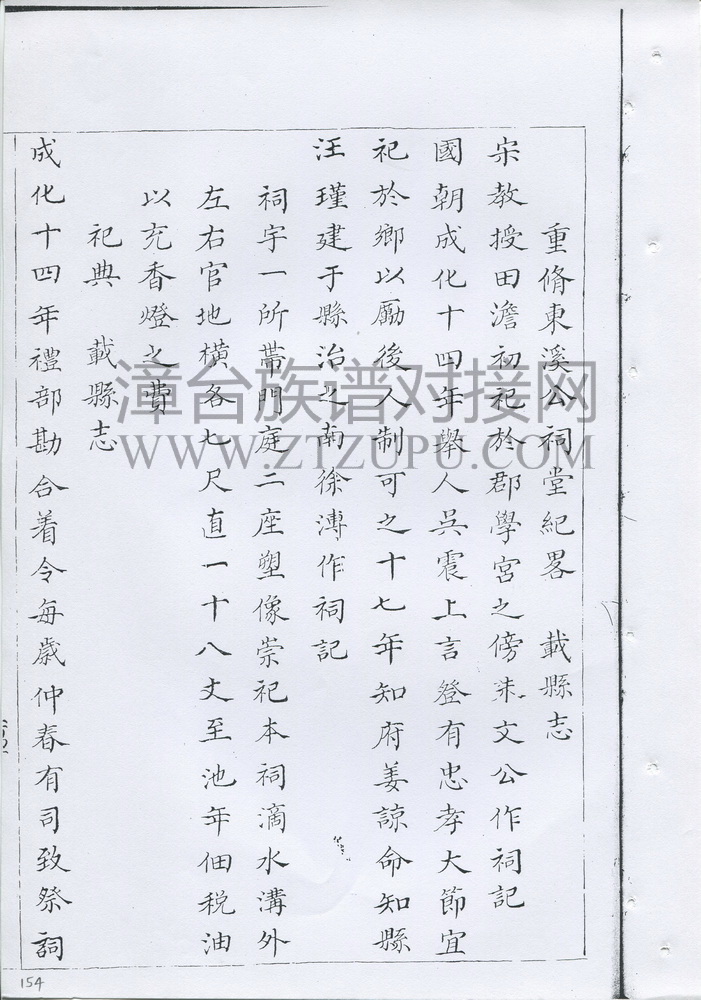 重脩東溪公祠堂紀畧 載縣志
宋教授田澹初祀於郡學宮之傍朱文公作祠記
國朝成化十四年舉人吳震上言登有忠孝大節宜
祀於鄉以勵後人制可之十七年知府姜諒命知縣
汪瑾建于縣治之南徐溥作祠記
祠宇一所帶門庭二座塑像崇祀本祠滴水溝外
左右官地橫各七尺直一十八丈至池年佃稅油
以充香燈之費
祀典 載縣志
成化十四年禮部勘合着令每歲仲春有司致祭詞
漳台族谱对接网
WWW.ZTZUPU.COM
154